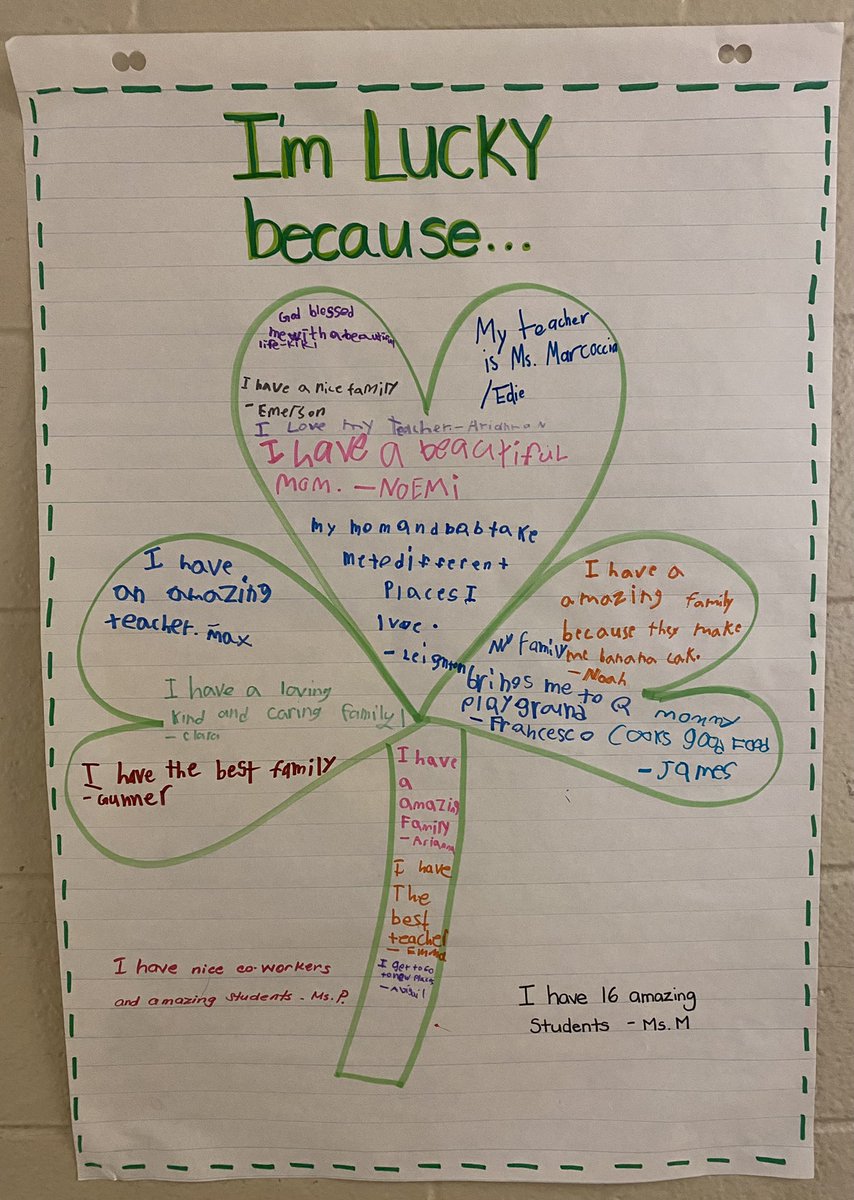 I'm LUCKY
because...
God blessed
me with a beautiful
life-Kiki
My teacher
is Ms. Marcoccia
/Edie
I have a nice family
- Emerson
I Love my teacher.-Arianna N
I have a beautiful
mom. -NOEMi
my mom and bab take
me to different
Places I
lvoe.
- Leighton
I have
an amazing
teacher. - max
I have a loving
kind and caring family!
- Clara
I have the best family
- Gunner
I have a
amazing family
because they make
me banana cake.
- Noah
My family
brings me to a
playground
- Francesco
mommy
Cooks good Food
- James
I have
a
amazing
Family
- Arianna
I have
The
best
teacher
- Emma
I get to go
to new places
- Abigail
I have nice co-workers
and amazing students - Ms. P.
I have 16 amazing
Students - Ms. M